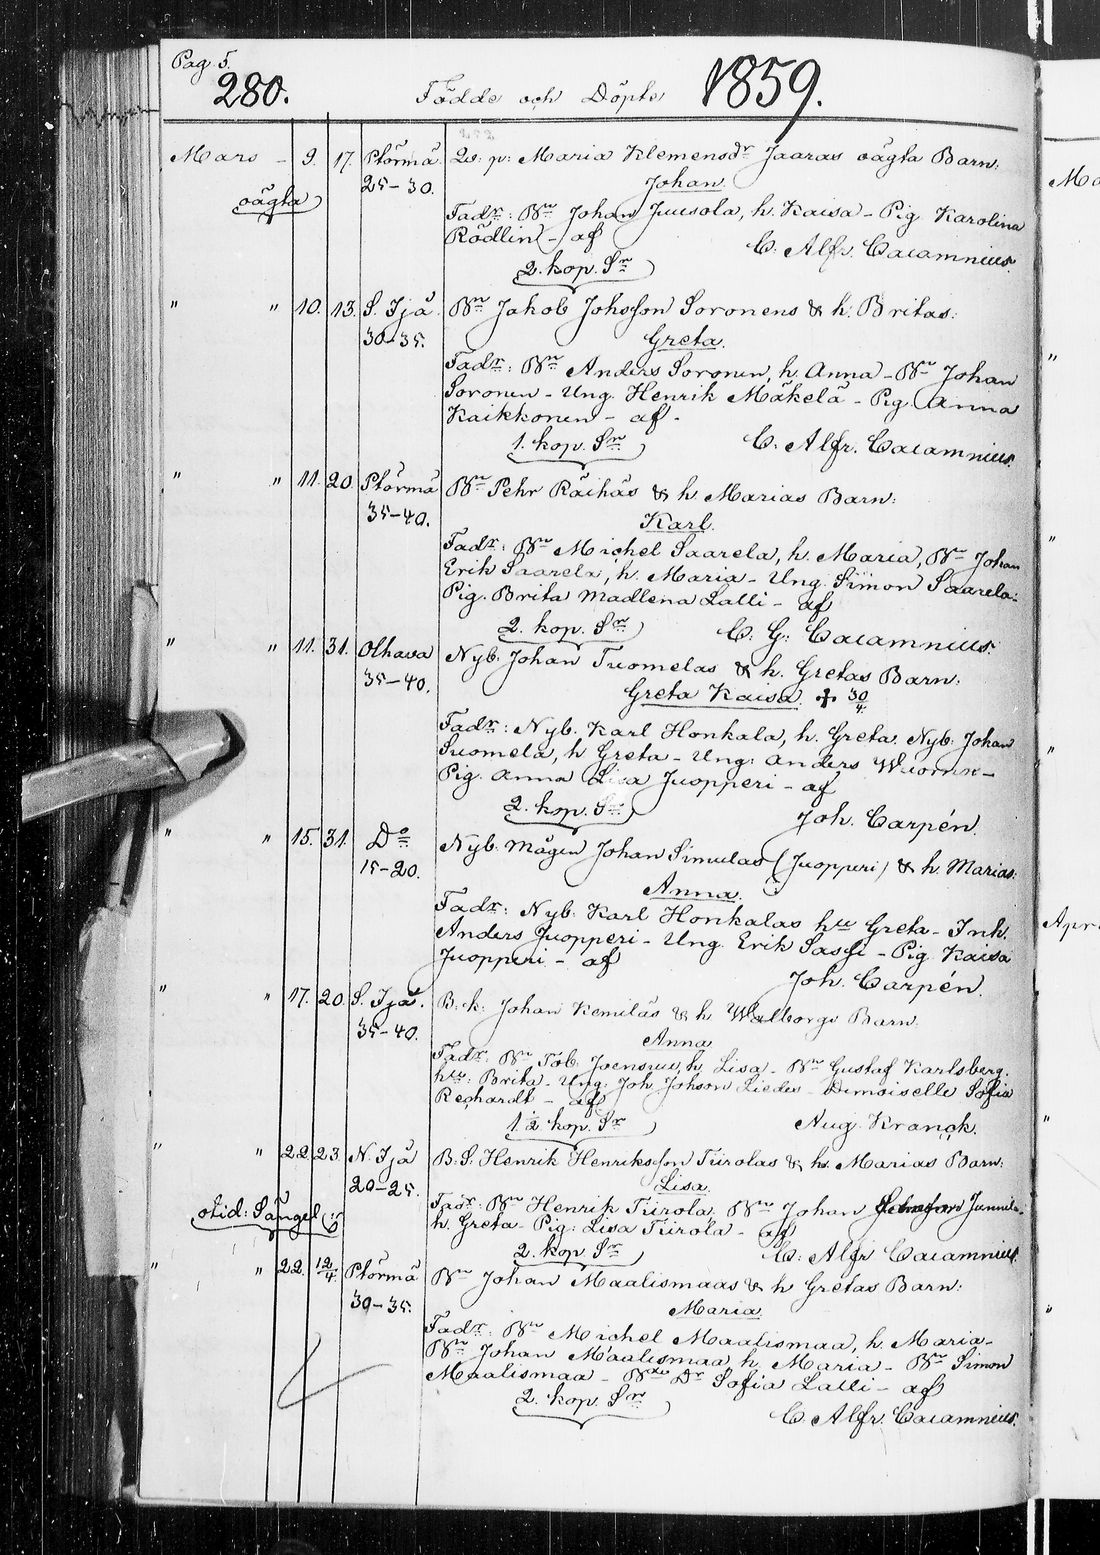 Pag 5.
280. Födde och Döpte 1859.
Mars - 9. 17. Ptörmä Qv: p: Maria Klemensdr Jaaras oägta Barn:
25-30. Johan.
oägta
Fadr: Bn Johan Juusola, h. Kaisa - Pig. Karolina
Rödlin - af C. Alfr. Cajamnius.
2. kop. Sr
" " 10. 13. S. Ijå. Bn Jakob Johsson Soronens & h: Britas:
30-35. Greta.
Fadr: Bn Anders Soronen, h. Anna - Bn Johan
Soronen - Ung. Henrik Mäkelä - Pig. Anna
Kaikkonen - af -
1. kop. Sr C. Alfr. Cajamnius.
" " 11. 20. Ptörmä Bn Pehr Räihäs & h. Marias Barn:
35-40. Karl.
Fadr: Bn Michel Saarela, h. Maria, Bn Johan
Erik Saarela, h. Maria - Ung. Simon Saarela -
Pig. Brita Madlena Lalli - af
2. kop. Sr C. G: Cajamnius.
" " 11. 31. Olhava Nyb. Johan Tuomelas & h. Gretas Barn:
35-40. Greta Kaisa. + 30/4.
Fadr: Nyb. Karl Honkala, h. Greta. Nyb. Johan
Tuomela, h Greta - Ung: Anders -
Pig. Anna Lisa Juopperi - af
2. kop. Sr Joh. Carpén.
" " 15. 31. Do Nyb. mågen Johan Simulas (Juopperi) & h. Marias:
15-20. Anna.
Fadr: Nyb. Karl Honkalas hu Greta - Inh.
Anders Juopperi - Ung. Erik Sassi - Pig. Kaisa
Juopperi - af
Joh. Carpén.
" " 17. 20. S. Ijå. B. k: Johan Kemiläs & h. Walborgs Barn.
35-40. Anna
Fadr: Bn Tob. Joensuu, h. Lisa - Bn Gustaf Karlsberg.
hu: Brita - Ung: Joh. Johson Liedes - Demoiselle Sofia
Rechardt - af
1 1/2 kop. Sr Aug. Kranck.
" " 22. 23. N. Ijå B. S: Henrik Henriksson Tiirolas & h. Marias Barn:
20-25. Lisa.
otid: Sängel.
Fadr: Bn Henrik Tiirola. Bn Johan
h. Greta - Pig: Lisa Tiirola - af
2. kop. Sr C: Alfr Cajamnius.
" " 22. 12/4 Ptörmä Bn Johan Maalismaas & h Gretas Barn:
30-35. Maria.
Fadr: Bn Michel Maalismaa, h. Maria -
Bn Johan Maalismaa h. Maria - Bn Simon
Maalismaa - Bde Dr Sofia Lalli - af
2. kop. Sr
C. Alfr. Cajamnius.